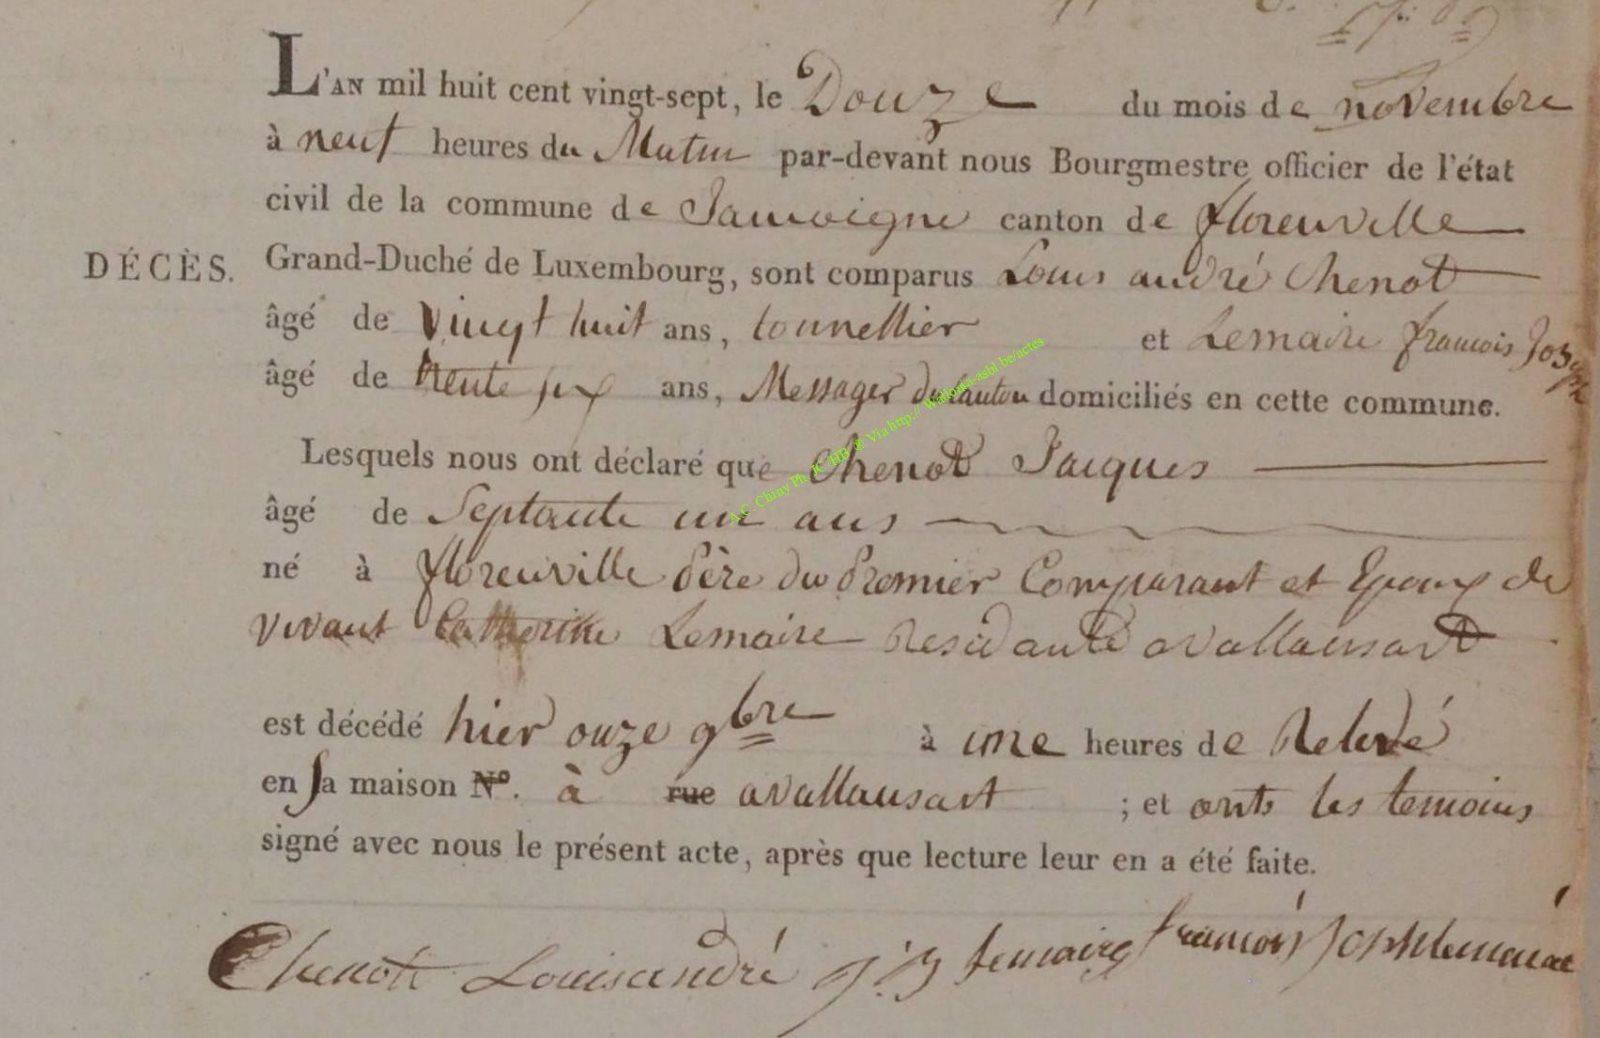 L'AN mil huit cent vingt-sept, le Douze du mois de novembre
à neuf heures du Matin par-devant nous Bourgmestre officier de l'état
civil de la commune de Jamoigne canton de florenville
DÉCÈS. Grand-Duché de Luxembourg, sont comparus Louis andré Chenot
âgé de vingt huit ans, tonnellier et Lemaire francois Joseph
âgé de trente six ans, Messager du Canton domiciliés en cette commune.
Lesquels nous ont déclaré que Chenot Jacques
âgé de Septante un ans
né à florenville Père du Premier Comparant et Epoux de
vivant Catherine Lemaire Residante avallansart
est décédé hier onze 9bre à une heures de Relevé
en sa maison N°. à rue avallansart ; et onts les temoins
signé avec nous le présent acte, après que lecture leur en a été faite.
Chenot Louis andré j:j lemaire francois Joseph lemaire
A.C. Chiny Ph. JC HB @ Via http://Wallonia-asbl.be/actes